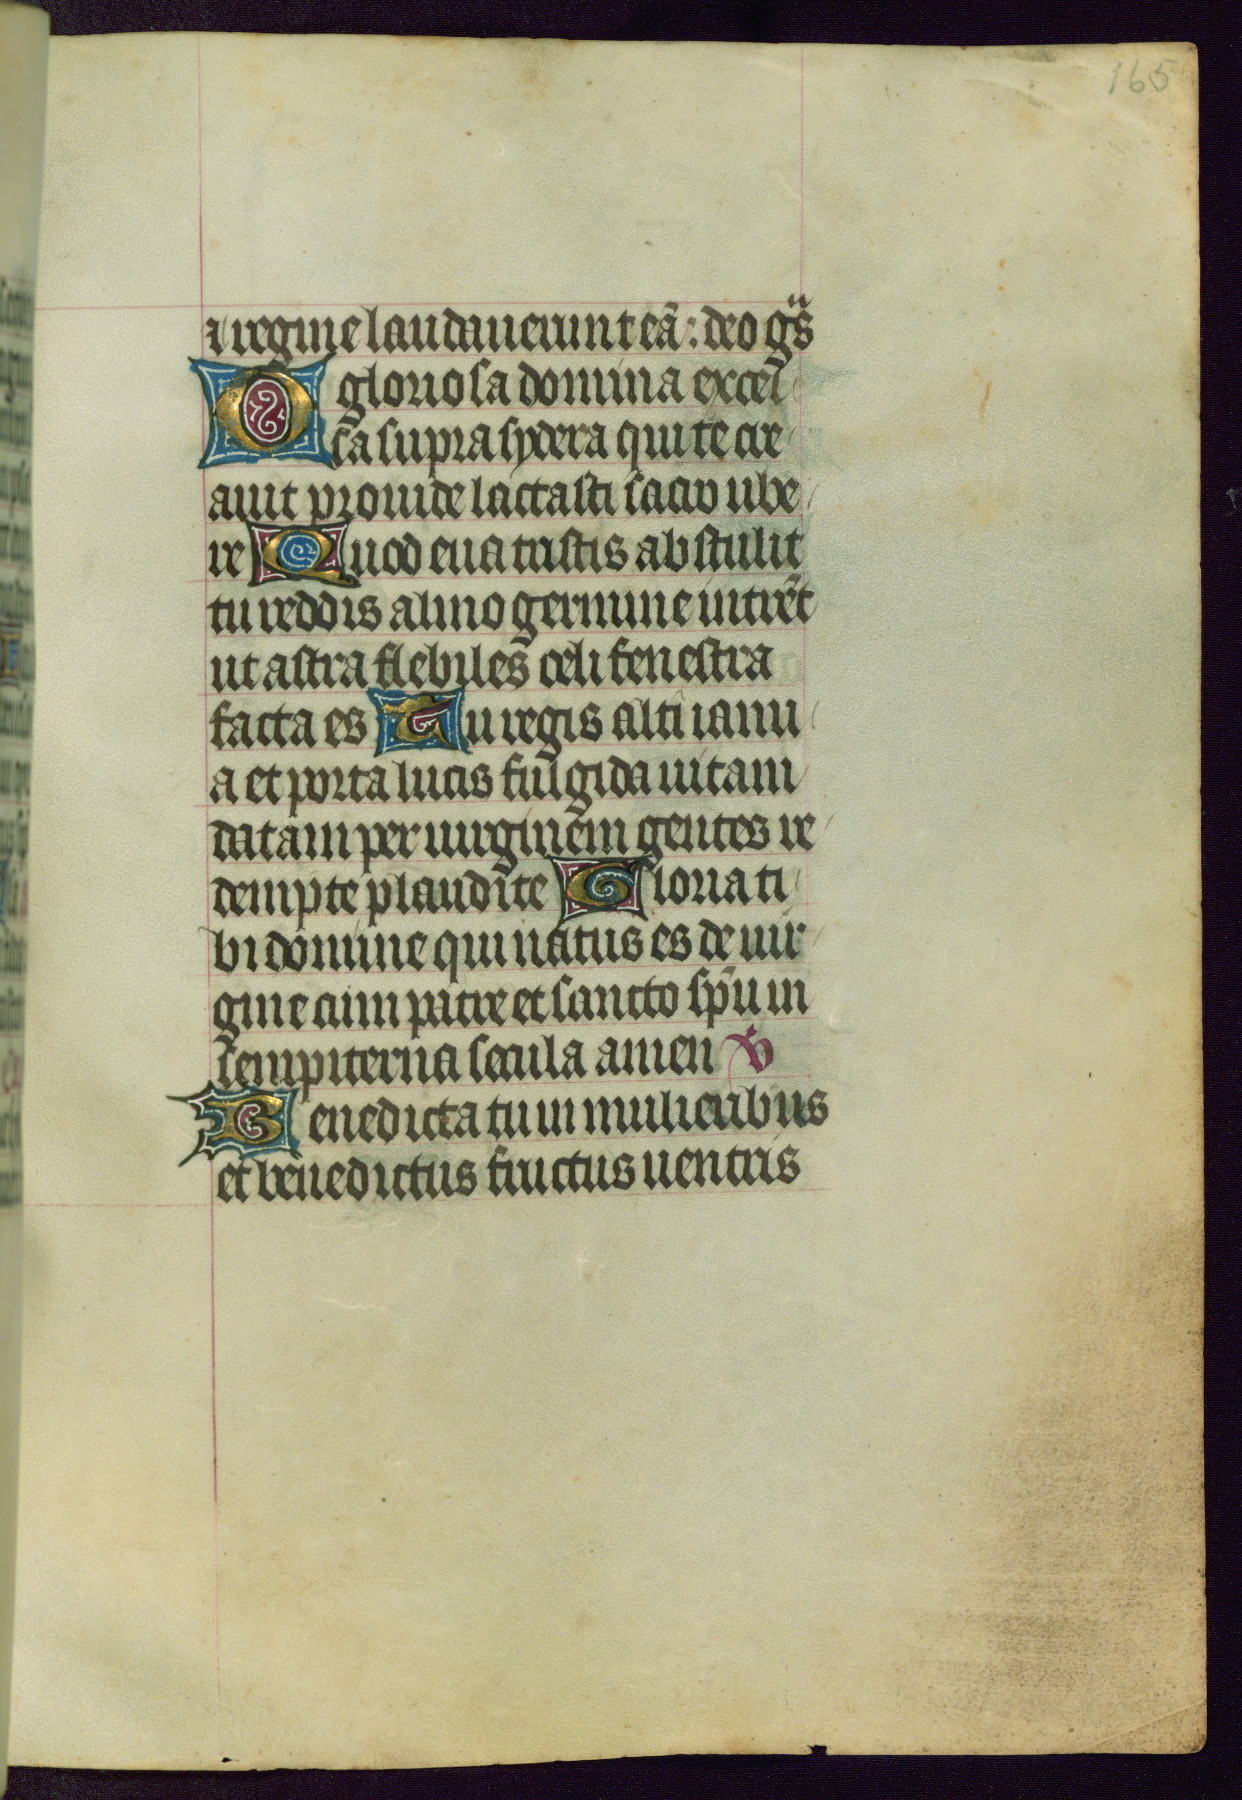 165
⁊ regine laudauerunt eã: deo gr̃s
O gloriosa domina excel
sa supra sydera qui te cre
auit prouide lactasti sacro ube
re Quod eua tristis abstulit
tu reddis almo germine intrẽt
ut astra flebiles celi fenestra
facta es Tu regis alti ianu
a et porta lucis fulgida uitam
datam per uirginem gentes re
dempte plaudite Gloria ti
bi domine qui natus es de uir
gine cum patre et sancto sp̃u in
sempiterna secula amen V
Benedicta tu in mulieribus
et benedictus fructus uentris